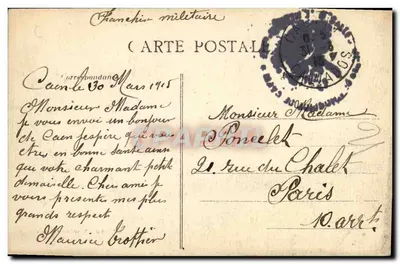 Franchise militaire
CARTE POSTALE
Correspondance
Caen le 30 Mars 1915
Monsieur Madame
je vous envoi un bonjour
de Caen j'espère que vous
etes en bonne santé ainsi
que votre charmant petit
demoiselle. Cher ami je
vous presentes mes plus
grands respect
Maurice
Monsieur Madame
Poncelet
21 rue du Chalet
Paris
10 arrt.